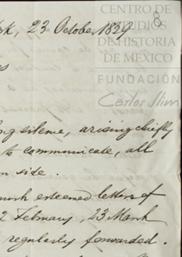 rk, 23 October 1834
CENTRO DE
ESTUDIOS
DE HISTORIA
DE MÉXICO
FUNDACIÓN
Carlos Slim
ng silence, arising chiefly
to communicate, all
on side.
esteemed letters of
2 February, 23 March
regularly forwarded.